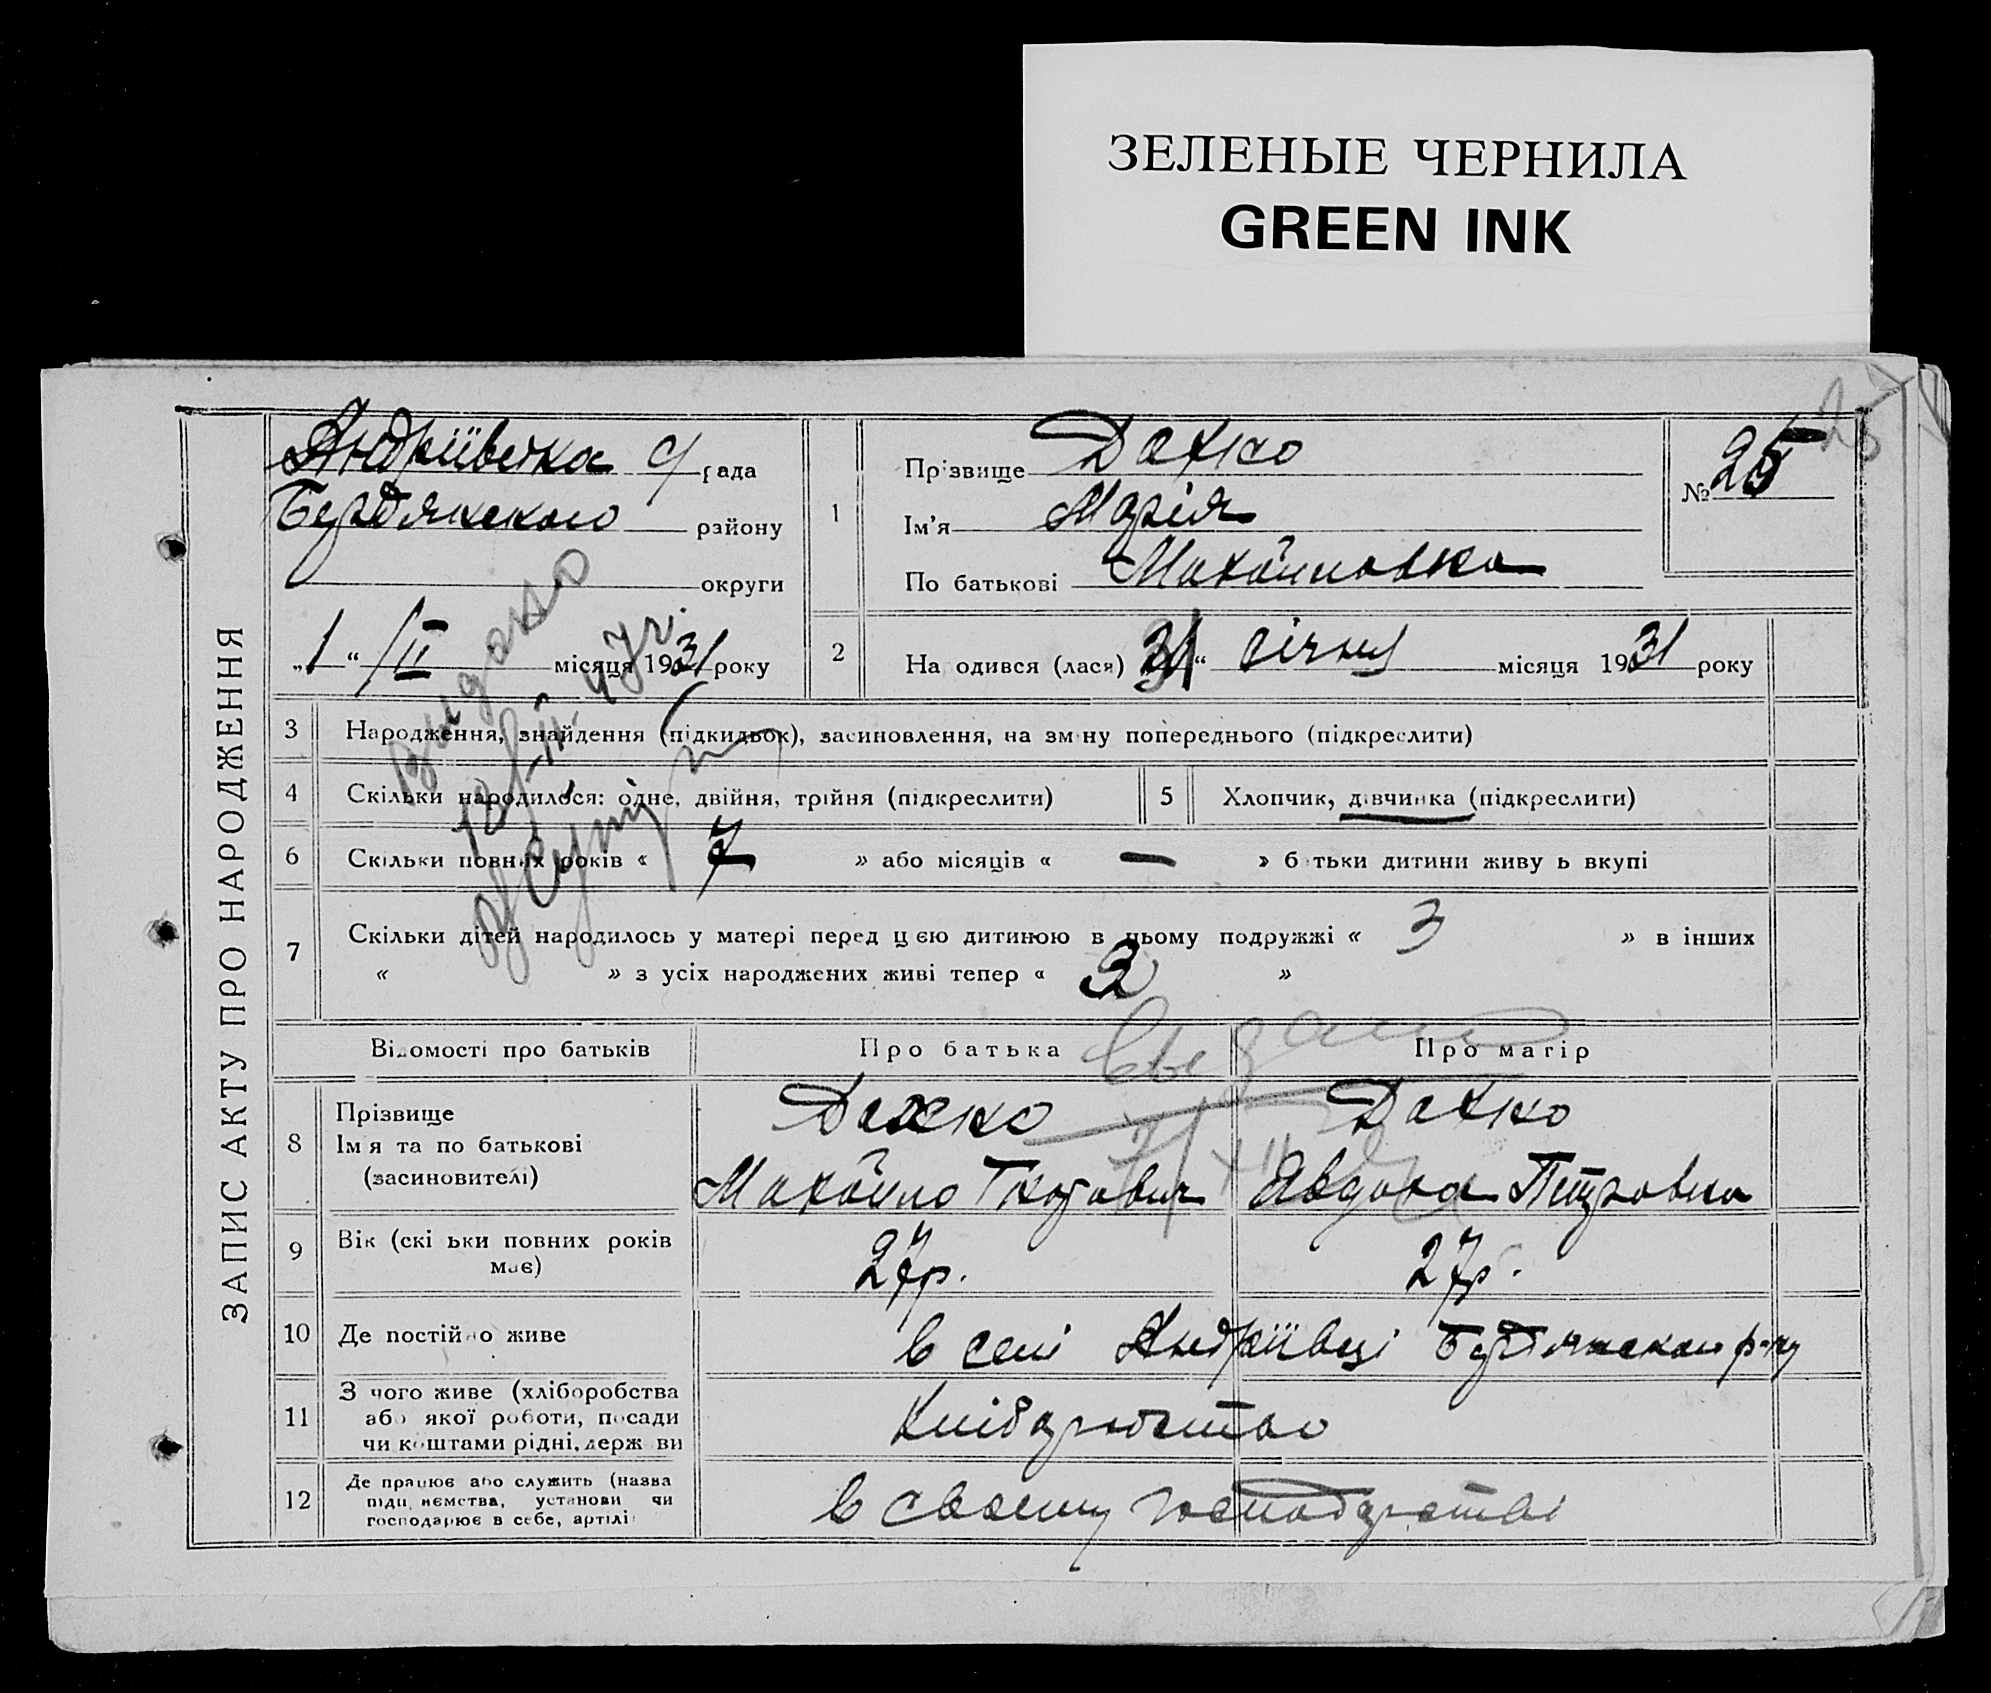 ЗЕЛЕНЫЕ ЧЕРНИЛА
GREEN INK
25
ЗАПИС АКТУ ПРО НАРОДЖЕННЯ
Андріївська с/рада
Бердянского району
округи
„1“ /II місяця 1931 року
1
Прізвище Дахно
Ім'я Марія
По батькові Михайловна
№ 25
2 На одився (лася) 31“ січня місяця 1931 року
Выдано
3 Народження, знайдення (підкидьок), засиновлення, на зміну попереднього (підкреслити)
4 Скільки народилося: одне, двійня, трійня (підкреслити)
5 Хлопчик, дівчинка (підкреслити)
6 Скільки повних років « 7 » або місяців « — » батьки дитини живу ь вкупі
7 Скільки дітей народилось у матері перед цєю дитиною в цьому подружжі « 3 » в інших
« » з усіх народжених живі тепер « 3 »
Відомості про батьків Про батька Про матір
8 Прізвище Дахно Дахно
Ім я та по батькові
(засиновителі) Михайло Явдоха Петровна
9 Вік (скі ьки повних років має) 27р. 27р.
10 Де постійно живе в селі Андріївці Бердянском р-ну
11 З чого живе (хліборобства
або якої роботи, посади
чи коштами рідні, держ ви Хліборобство
12 Де працює або служить (назва
підп иємства, установи чи
господарює в себе, артілі в своєму господарстві